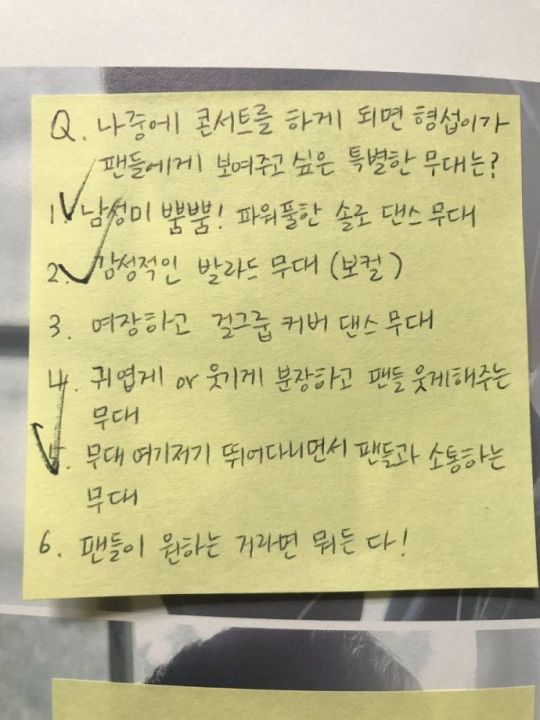 Q. 나중에 콘서트를 하게 되면 형섭이가
팬들에게 보여주고 싶은 특별한 무대는?
1. 남성미 뿜뿜! 파워풀한 솔로 댄스 무대
2. 감성적인 발라드 무대 (보컬)
3. 여장하고 걸그룹 커버 댄스 무대
4. 귀엽게 or 웃기게 분장하고 팬들 웃게해주는
무대
5. 무대 여기저기 뛰어다니면서 팬들과 소통하는
무대
6. 팬들이 원하는 거라면 뭐든 다!